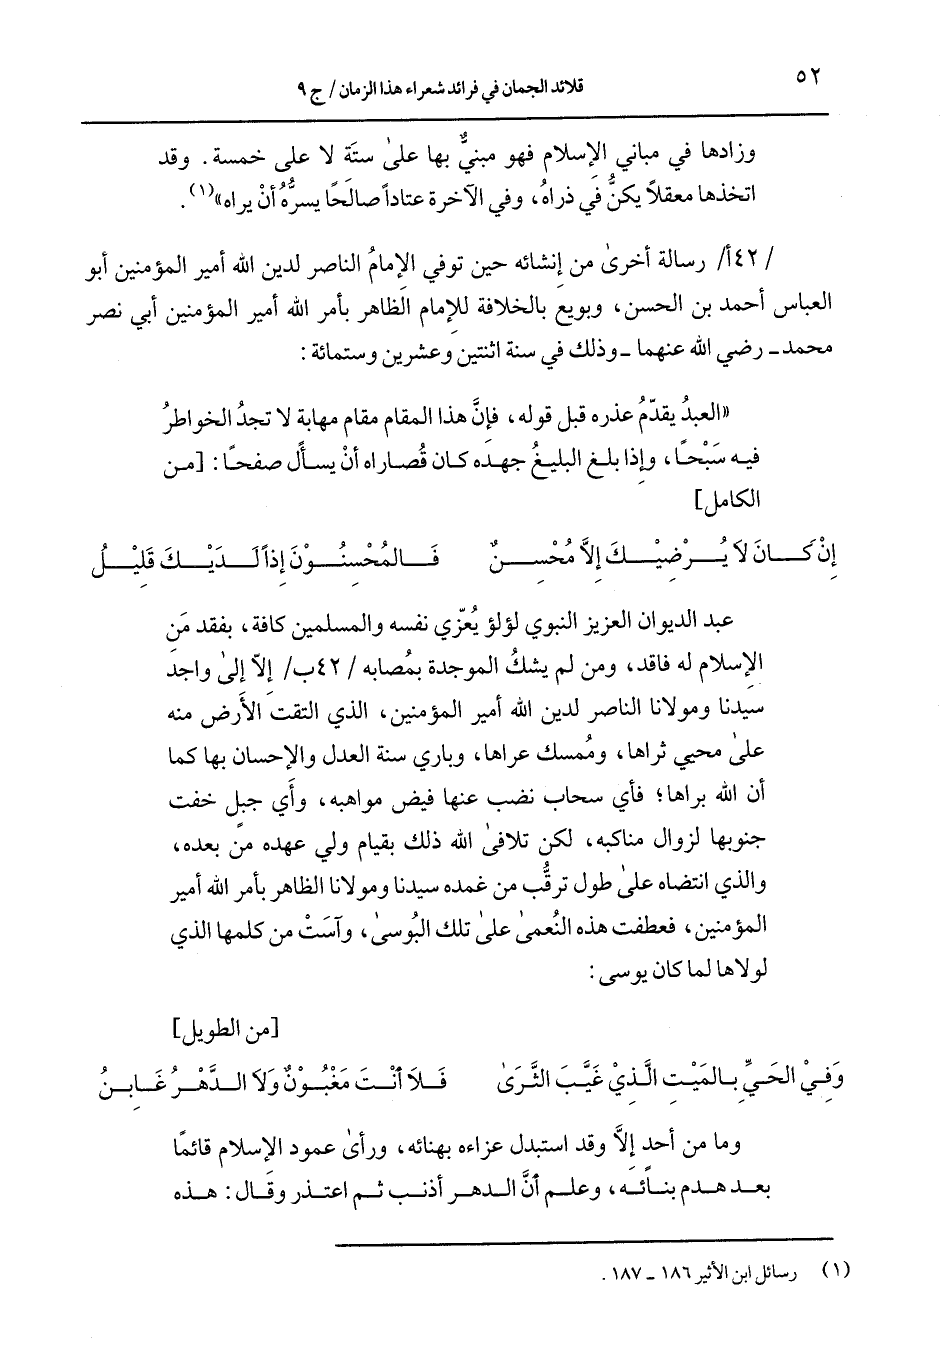 ٥٢
قلائد الجمان في فرائد شعراء هذا الزمان / ج ٩
وزادها في مباني الإسلام فهو مبنيٌّ بها علىٰ ستَة لا على خمسة. وقد
اتخذها معقلاً يكنُّ في ذراهُ، وفي الآخرة عتاداً صالحًا يسرُّهُ أنْ يراه»(١).
/ ٤٢أ/ رسالة أخرىٰ من إنشائه حين توفي الإمامُ الناصر لدين الله أمير المؤمنين أبو
العباس أحمد بن الحسن، وبويع بالخلافة للإمام الظاهر بأمر الله أمير المؤمنين أبي نصر
محمد ـ رضي الله عنهما ـ وذلك في سنة اثنتين وعشرين وستمائة:
«العبدُ يقدّمُ عذره قبل قوله، فإنَّ هذا المقام مقام مهابة لا تجدُ الخواطرُ
فيه سَبْحًا، وإذا بلغ البليغُ جهده كان قُصاراه أنْ يسأل صفحًا: [من
الكامل]
إِنْ كَــانَ لاَ يُــرْضِيْــكَ إلاَّ مُحْســنٌ فَــالمُحْسنُــوْنَ إذاً لَــدَيْــكَ قَلِيْــلُ
عبد الديوان العزيز النبوي لؤلؤ يُعزّي نفسه والمسلمين كافة، بفقد مَن
الإسلام له فاقد، ومن لم يشكُ الموجدة بمُصابه / ٤٢ب/ إلاّ إلىٰ واجد
سيدنا ومولانا الناصر لدين الله أمير المؤمنين، الذي التقت الأرض منه
علىٰ محيي ثراها، ومُمسك عراها، وباري سنة العدل والإحسان بها كما
أن الله براها؛ فأي سحاب نضب عنها فيض مواهبه، وأي جبل خفت
جنوبها لزوال مناكبه، لكن تلافىٰ الله ذلك بقيام ولي عهده من بعده،
والذي انتضاه علىٰ طول ترقُّب من غمده سيدنا ومولانا الظاهر بأمر الله أمير
المؤمنين، فعطفت هذه النُعمىٰ علىٰ تلك البُوسىٰ، وآسَتْ من كلمها الذي
لولاها لما كان يوسى:
[من الطويل]
وَفِيْ الحَيِّ بِـالمَيْتِ الَّـذِيْ غَيَّبَ الثَّرَىٰ فَـلاَ أنْـتَ مَغْبُـوْنٌ وَلاَ الـدَّهْـرُ غَـابِـنُ
وما من أحد إلاَّ وقد استبدل عزاءه بهنائه، ورأىٰ عمود الإسلام قائمًا
بعد هدم بنائه، وعلم أنَّ الدهر أذنب ثم اعتذر وقال: هذه
(١) رسائل ابن الأثير ١٨٦ ـ ١٨٧.